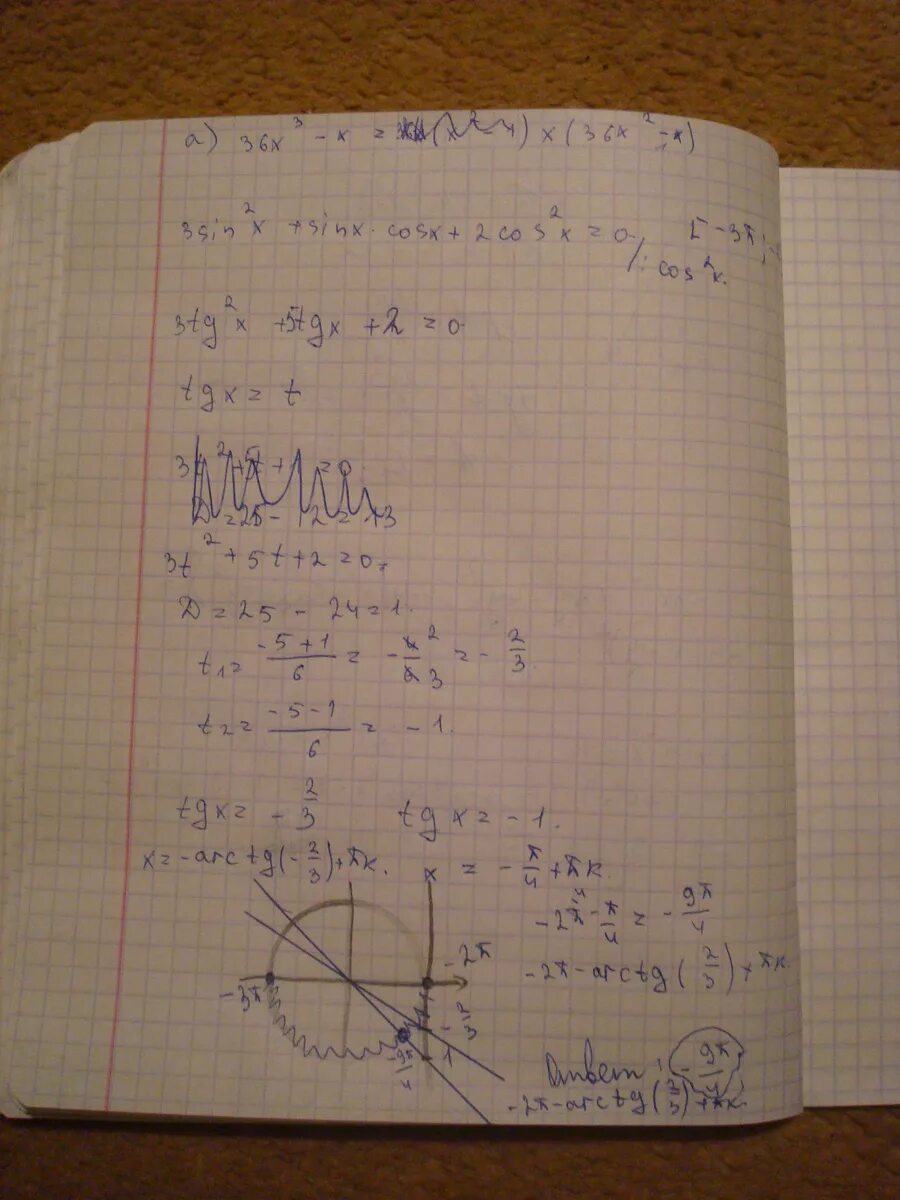 а) 36x³ - x = x(36x² - 1)
3sin²x + sinx · cosx + 2cos²x = 0 [-3π;
/: cos²x.
3tg²x + 5tgx + 2 = 0
tgx = t
3t² + 5t + 2 = 0
D = 25 - 24 = 1.
t₁ = (-5+1)/6 = -4/6 2/3 = -2/3
t₂ = (-5-1)/6 = -1.
tgx = -2/3 tgx = -1.
x = -arctg(-2/3) + πk. x = -π/4 + πk
-2π - π/4 = -9π/4
-2π - arctg(2/3) + πk.
-3π -2π
-2/3
-1
-9π/4
Ответ: -9π/4
-2π - arctg(2/3) + πk.